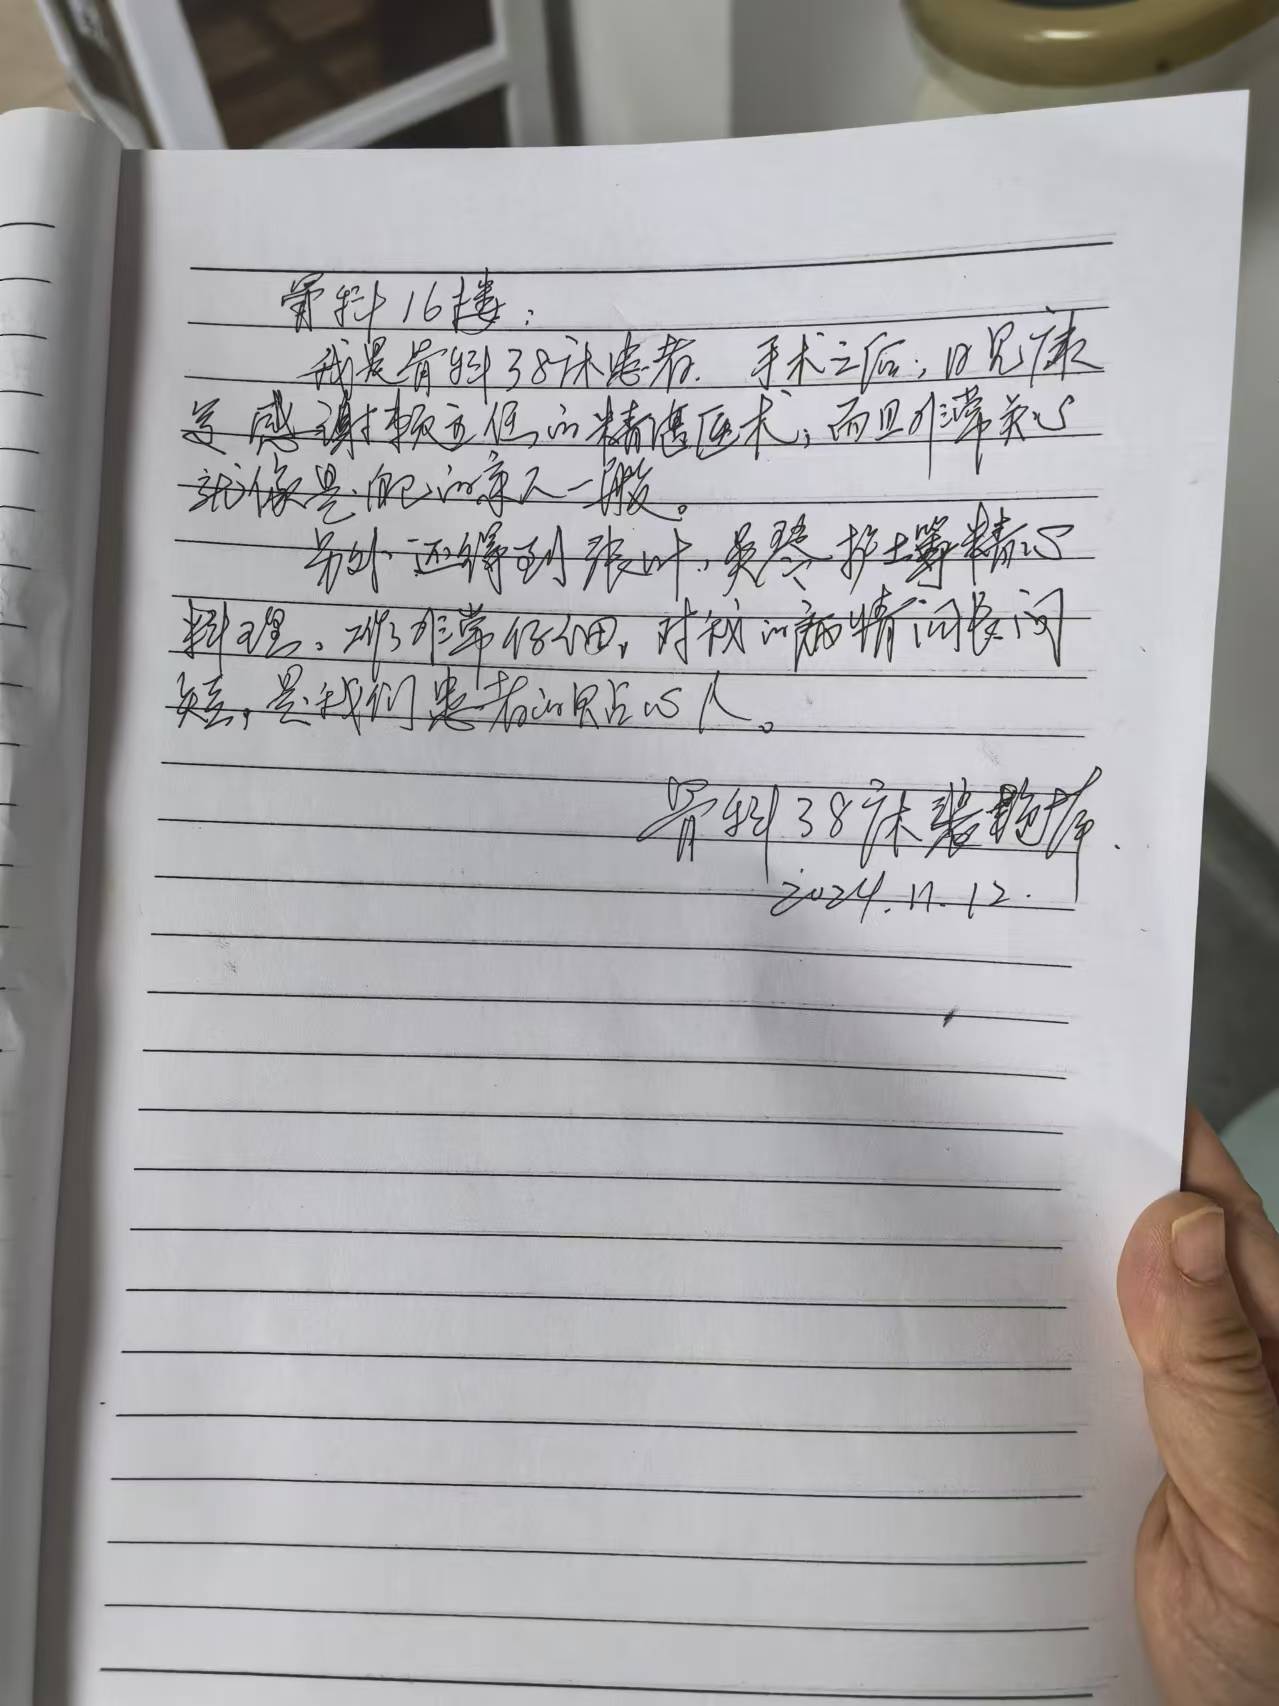 骨科16楼:
我是骨科38床患者. 手术之后,日见康
复 感谢顾主任的精湛医术,而且非常关心
就像是自己的亲人一般。
另外还得到张叶、吴琴护士等精心
料理。工作非常仔细,对我的病情问长问
短,是我们患者的贴心人。
骨科38床裴
2024.11.12.